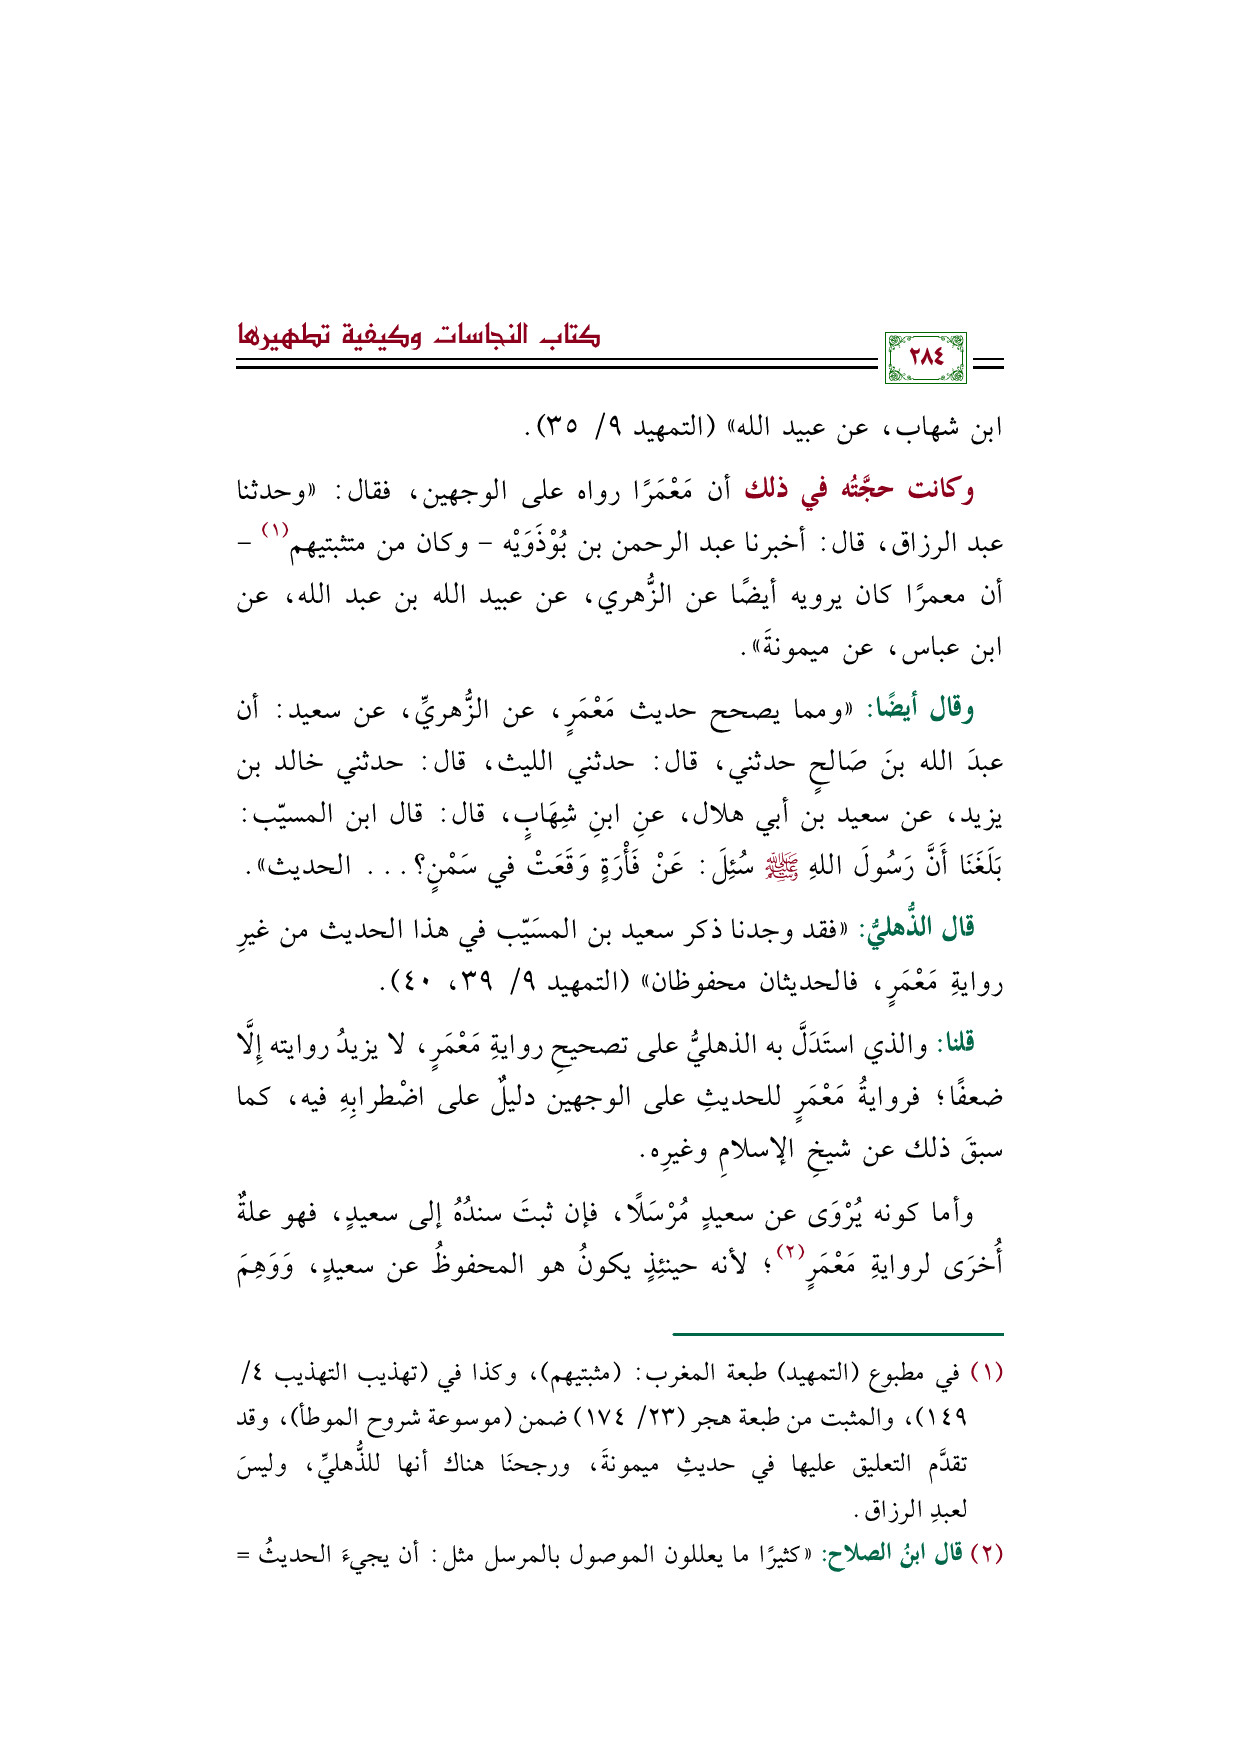 كتاب النجاسات وكيفية تطهيرها
٢٨٤
ابن شهاب، عن عبيد الله» (التمهيد ٩/ ٣٥).
وكانت حجَّتُه في ذلك أن مَعْمَرًا رواه على الوجهين، فقال: «وحدثنا
عبد الرزاق، قال: أخبرنا عبد الرحمن بن بُوْذَوَيْه - وكان من متثبتيهم(١) -
أن معمرًا كان يرويه أيضًا عن الزُّهري، عن عبيد الله بن عبد الله، عن
ابن عباس، عن ميمونةَ».
وقال أيضًا: «ومما يصحح حديث مَعْمَرٍ، عن الزُّهريِّ، عن سعيد: أن
عبدَ الله بنَ صَالحٍ حدثني، قال: حدثني الليث، قال: حدثني خالد بن
يزيد، عن سعيد بن أبي هلال، عنِ ابنِ شِهَابٍ، قال: قال ابن المسيّب:
بَلَغَنَا أَنَّ رَسُولَ اللهِ ﷺ سُئِلَ: عَنْ فَأْرَةٍ وَقَعَتْ في سَمْنٍ؟... الحديث».
قال الذُّهليُّ: «فقد وجدنا ذكر سعيد بن المسَيّب في هذا الحديث من غيرِ
روايةِ مَعْمَرٍ، فالحديثان محفوظان» (التمهيد ٩/ ٣٩، ٤٠).
قلنا: والذي استَدَلَّ به الذهليُّ على تصحيحِ روايةِ مَعْمَرٍ، لا يزيدُ روايته إِلَّا
ضعفًا؛ فروايةُ مَعْمَرٍ للحديثِ على الوجهين دليلٌ على اضْطرابِهِ فيه، كما
سبقَ ذلك عن شيخِ الإسلامِ وغيرِه.
وأما كونه يُرْوَى عن سعيدٍ مُرْسَلًا، فإن ثبتَ سندُهُ إلى سعيدٍ، فهو علةٌ
أُخرَى لروايةِ مَعْمَرٍ(٢)؛ لأنه حينئِذٍ يكونُ هو المحفوظُ عن سعيدٍ، وَوَهِمَ
(١) في مطبوع (التمهيد) طبعة المغرب: (مثبتيهم)، وكذا في (تهذيب التهذيب ٤/
١٤٩)، والمثبت من طبعة هجر (٢٣/ ١٧٤) ضمن (موسوعة شروح الموطأ)، وقد
تقدَّم التعليق عليها في حديثِ ميمونةَ، ورجحنَا هناك أنها للذُّهليِّ، وليسَ
لعبدِ الرزاق.
(٢) قال ابنُ الصلاح: «كثيرًا ما يعللون الموصول بالمرسل مثل: أن يجيءَ الحديثُ =